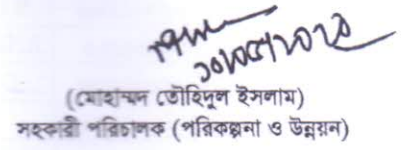 (মোহাম্মদ তৌহিদুল ইসলাম)
সহকারী পরিচালক (পরিকল্পনা ও উন্নয়ন)